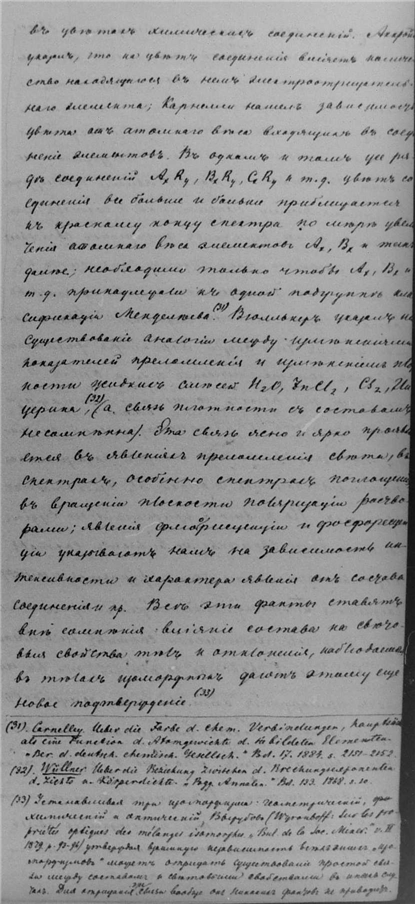 въ цвѣтахъ химическихъ соединеній.
указалъ, что на цвѣтъ соединенія вліяетъ количе
ство находящагося въ немъ электроотрицатель
наго элемента; Карнелли нашелъ зависимость
цвѣта отъ атомнаго вѣса входящихъ въ соеди
неніе элементовъ. Въ одномъ и томъ же ря
дѣ соединеній AxRy, BxRy, CxRy и т.д. цвѣтъ со
единенія все больше и больше приближается
къ красному концу спектра по мѣрѣ увели
ченія атомнаго вѣса элементовъ Ax, Bx и такъ
далѣе; необходимо только чтобы Ax, Bx и
т.д. принадлежали къ одной подгруппѣ клас
сификаціи Менделѣева.(31) Вюлльнеръ указалъ на
существованіе аналогіи между измѣненіями
показателей преломленія и измѣненіемъ плот
ности жидкихъ смѣсей H2O, ZnCl2, Гли
церина,(32) (а связь плотности съ составомъ
несомнѣнна). Эта связь ясно и ярко проявля
ется въ явленіяхъ преломленія свѣта, въ
спектрахъ, особенно спектрахъ поглощенія,
въ вращеніи плоскости поляризаціи раство
рами; явленія флюоресценціи и фосфоресцен
ціи указываютъ намъ на зависимость ин
тенсивности и характера явленія отъ состава
соединенія и пр. Всѣ эти факты ставятъ
внѣ сомнѣнія вліяніе состава на свѣто
выя свойства тѣлъ и отклоненія, наблюдаемыя
въ тѣлахъ изоморфныхъ даютъ этому еще
новое подтвержденіе.(33)
(31). Carnelley. Ueber die Farbe d. chem. Verbindungen, hauptsäch
als eine Function d. Atomgewichte d. sie bildenden Elementen.
"Ber. d. deutsch. chemisch. Gesellsch." Bd. 17. 1884. s. 2151-2152.
(32). Wüllner. Ueber die Beziehung zwischen d. Brechungsexponenten
d. Lichts u. Körperdichte. "Pogg. Annalen." Bd. 133. 1868. s.
(33) Устанавливая три изоморфизма: геометрическій,
химическій и оптическій, Вырубовъ (Wyrouboff: Sur les pro
priétés optiques des mélanges isomorphes "Bul. de la Soc. Minér." v. II
1879 p. 91-) утверждая
морфизмовъ" можетъ отрицать существованіе простой свя
зи между составомъ и свѣтовыми свойствами
Для отрицанія связи вообще онъ никакихъ фактовъ не приводитъ.